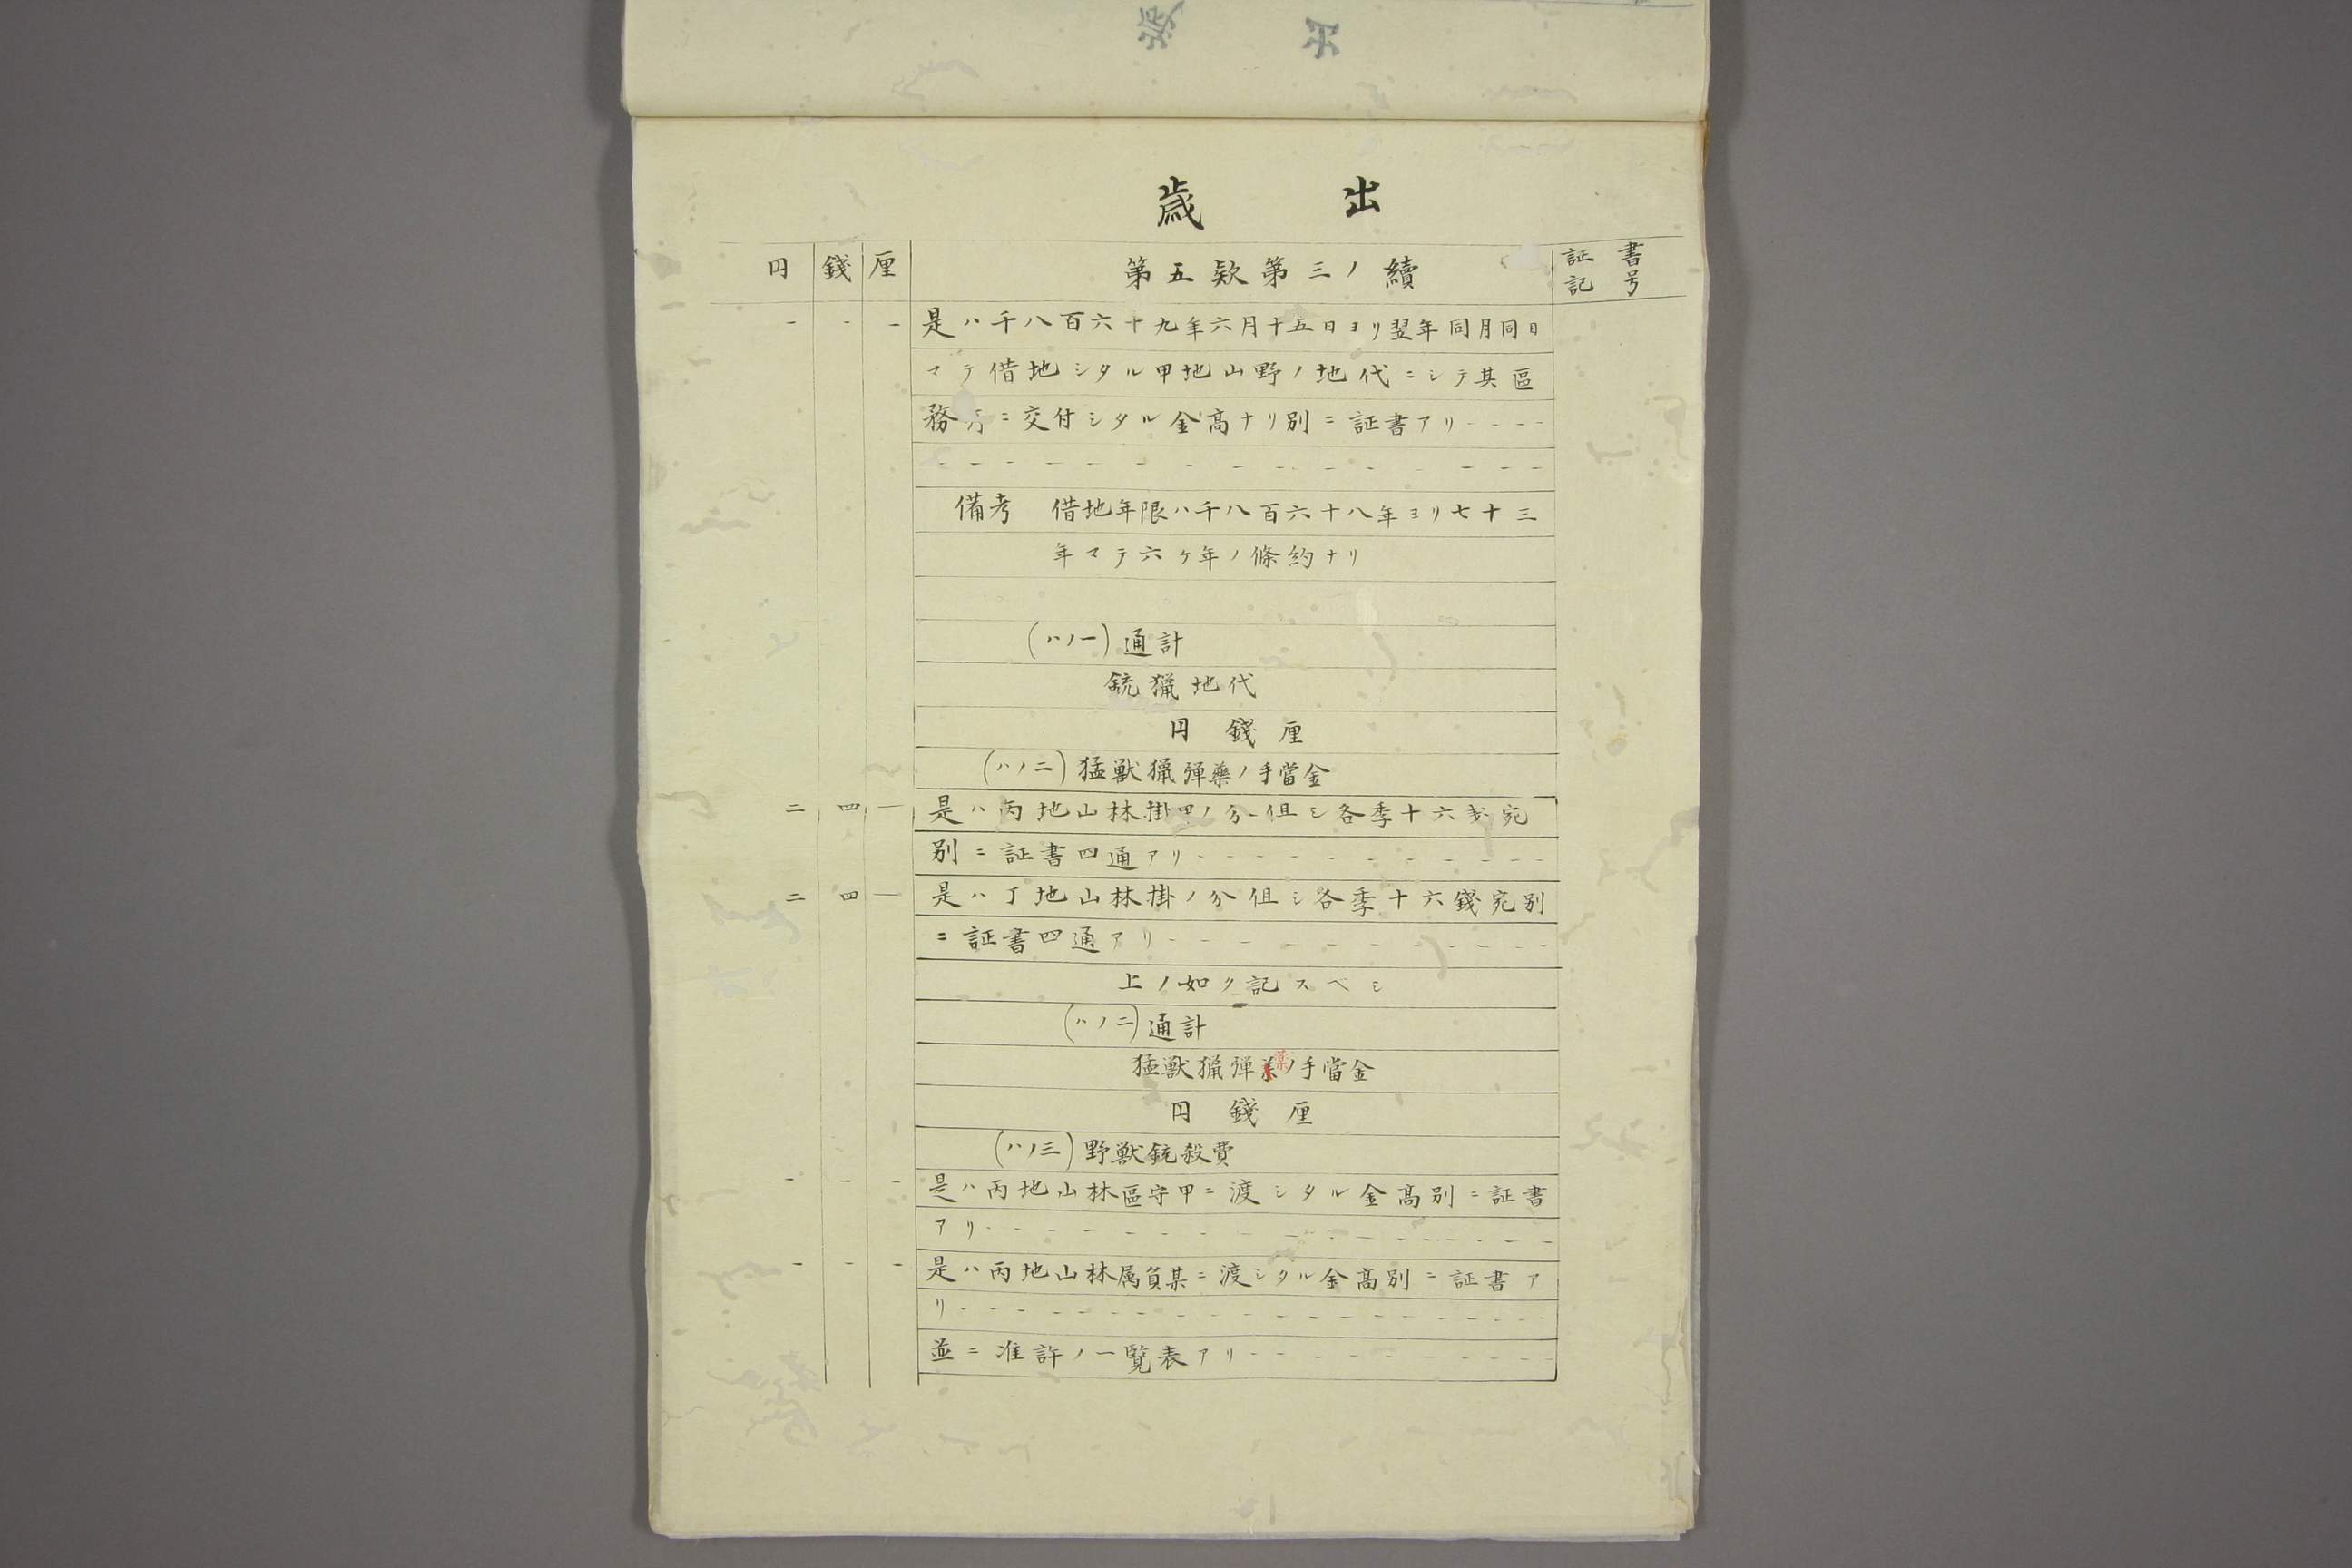 歳出
円 錢 厘 第五欵第三ノ續 証書
記号
是ハ千八百六十九年六月十五日ヨリ翌年同月同日
マテ借地シタル甲地山野ノ地代ニシテ其區
務所ニ交付シタル金高ナリ別ニ証書アリ
備考 借地年限ハ千八百六十八年ヨリ七十三
年マテ六ケ年ノ條約ナリ
(ハノ一)通計
銃獵地代
円 錢 厘
(ハノ二)猛獣獵弾藥ノ手當金
二 四 一 是ハ丙地山林掛甲ノ分但シ各季十六戔宛
別ニ証書四通アリ
二 四 一 是ハ丁地山林掛ノ分但シ各季十六錢宛別
ニ証書四通アリ
上ノ如ク記スベシ
(ハノ二)通計
猛獣獵弾藥ノ手當金
円 錢 厘
(ハノ三)野獣銃殺費
是ハ丙地山林區守甲ニ渡シタル金高別ニ証書
アリ
是ハ丙地山林属負某ニ渡シタル金高別ニ証書ア
リ
並ニ准許ノ一覧表アリ